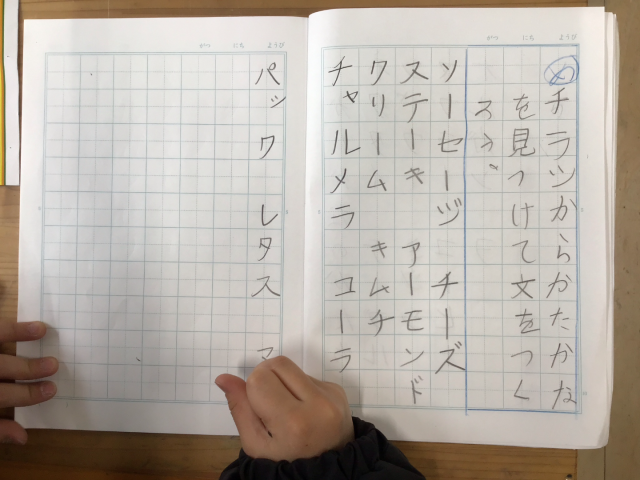 がつ にち ようび
めチラシからかたかな
を見つけて文をつく
ろう。
ソーセージ チーズ
ステーキ アーモンド
クリーム キムチ
チャルメラ コーラ
がつ にち ようび
パック レタス